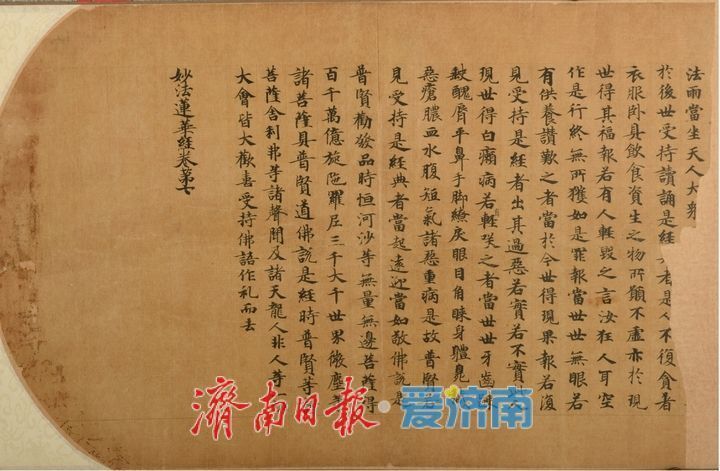 法雨當坐天人大
於後世受持讀誦是經者是人不復貪著
衣服卧具飲食資生之物所願不虛亦於現
世得其福報若有人輕毀之言汝狂人耳空
作是行終無所獲如是罪報當世世無眼若
有供養讚歎之者當於今世得現果報若復
見受持是經者出其過惡若實若不實
現世得白癩病若輕笑之者當世世牙齒踈
缺醜脣平鼻手腳繚戾眼目角睞身體臭
惡瘡膿血水腹短氣諸惡重病是故普賢若
見受持是經典者當起遠迎當如敬佛說是
普賢勸發品時恒河沙等無量無邊菩薩得
百千萬億旋陀羅尼三千大千世界微塵等
諸菩薩具普賢道佛說是經時普賢等
菩薩舍利弗等諸聲聞及諸天龍人非人等一
大會皆大歡喜受持佛語作礼而去
妙法蓮華經卷第七
濟南日报 爱济南